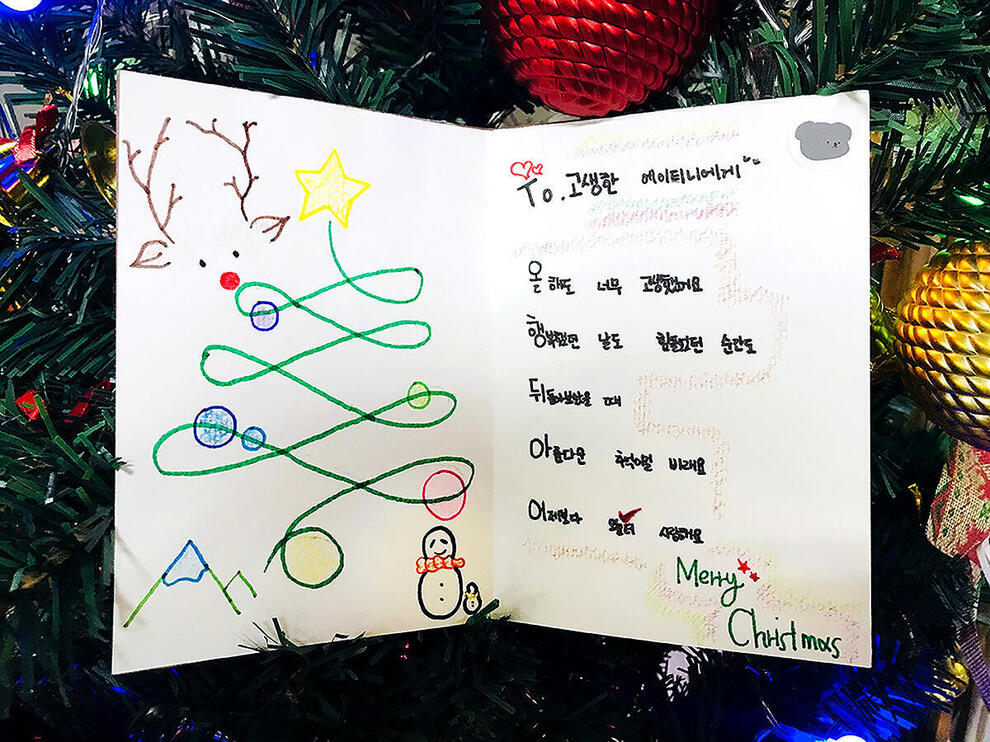 To. 고생한 에이티니에게
올 해도 너무 고생했어요
행복했던 날도 힘들었던 순간도
뒤돌아보았을 때
아름다운 추억이길 바래요
어제보다 오늘 더 사랑해요
Merry
Christmas